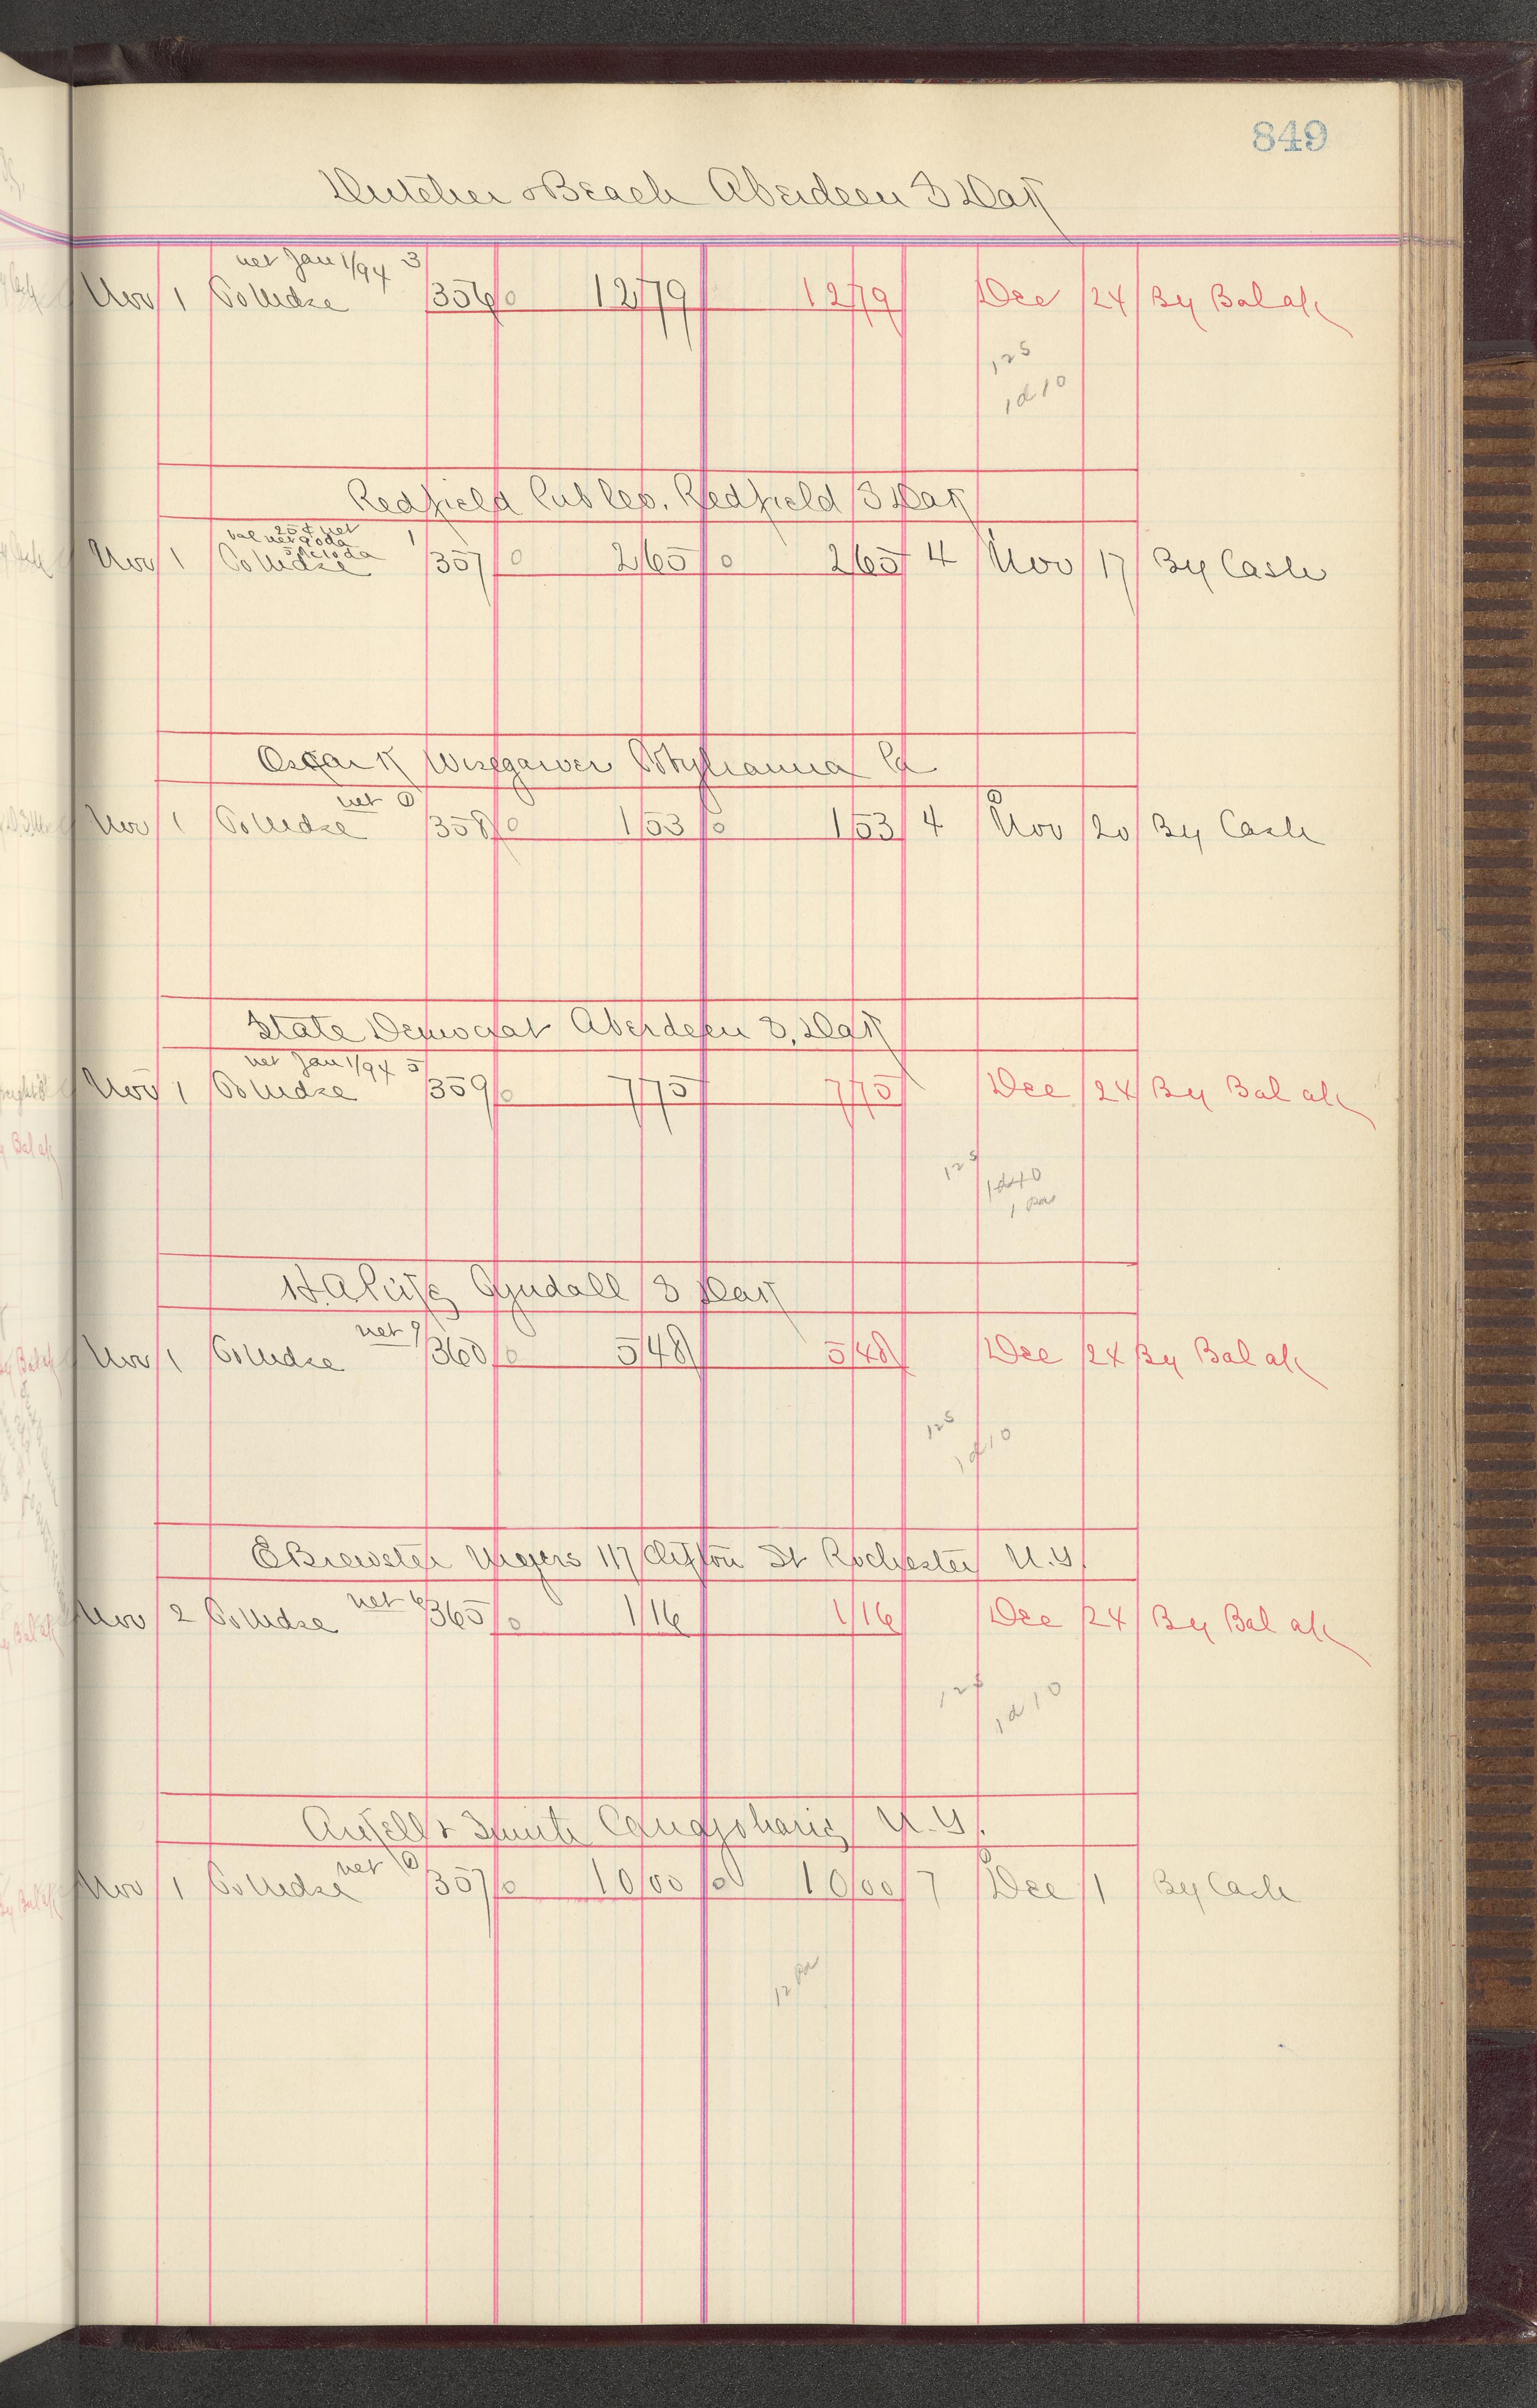 849
Dutcher & Beach Aberdeen S Dak
net Jan 1/94 3
Nov 1 To Mdse 356 0 12 79 12 79 Dec 24 By Bal a/c
12 S
1 d 10
Redfield Redfield S Dak
25¢ net 1
bal net
Nov 1 To Mdse 357 0 2 65 0 2 65 4 Nov 17 By Cash
Oscar K Wisegarver Pa
net 1 1
Nov 1 To Mdse 358 0 1 53 0 1 53 4 Nov 20 By Cash
State Democrat Aberdeen S. Dak
net Jan 1/94 5
Nov 1 To Mdse 359 0 7 75 7 75 Dec 24 By Bal a/c
12 S
1 d 10
1
H.A. Tyndall S Dak
net 9
Nov 1 To Mdse 360 0 5 48 5 48 Dec 24 By Bal a/c
12 S
1 d 10
E Brewster Myers 117 Clifton St Rochester N.Y.
net 6
Nov 2 To Mdse 365 0 1 16 1 16 Dec 24 By Bal a/c
12 S
1 d 10
& Smith Canajoharie N.Y.
net
Nov 1 To Mdse 357 0 10 00 0 10 00 7 Dec 1 By Cash
12